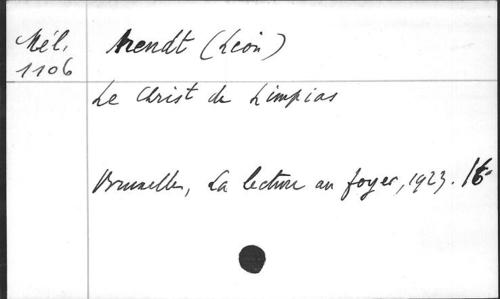 Mél. Arendt (Léon)
1106
Le Christ de Limpias
Bruxelles, La lecture au foyer, 1923. 16°